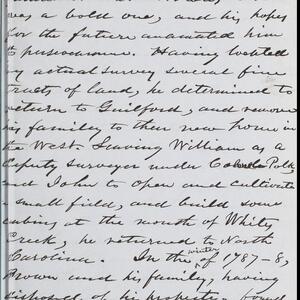 was a bold one, and his hopes
for the future animated him
to perseverance. Having located
by actual survey several fine
tracts of land, he determined to
return to Guilford, and remove
his family to their new home in
the West. Leaving William as a
Deputy surveyor under Polk,
and John to open and cultivate
a small field, and build some
cabins at the mouth of White's
Creek, he returned to North
Carolina. In the winter of 1787-8,
Brown and his family, having
disposed of his property, found